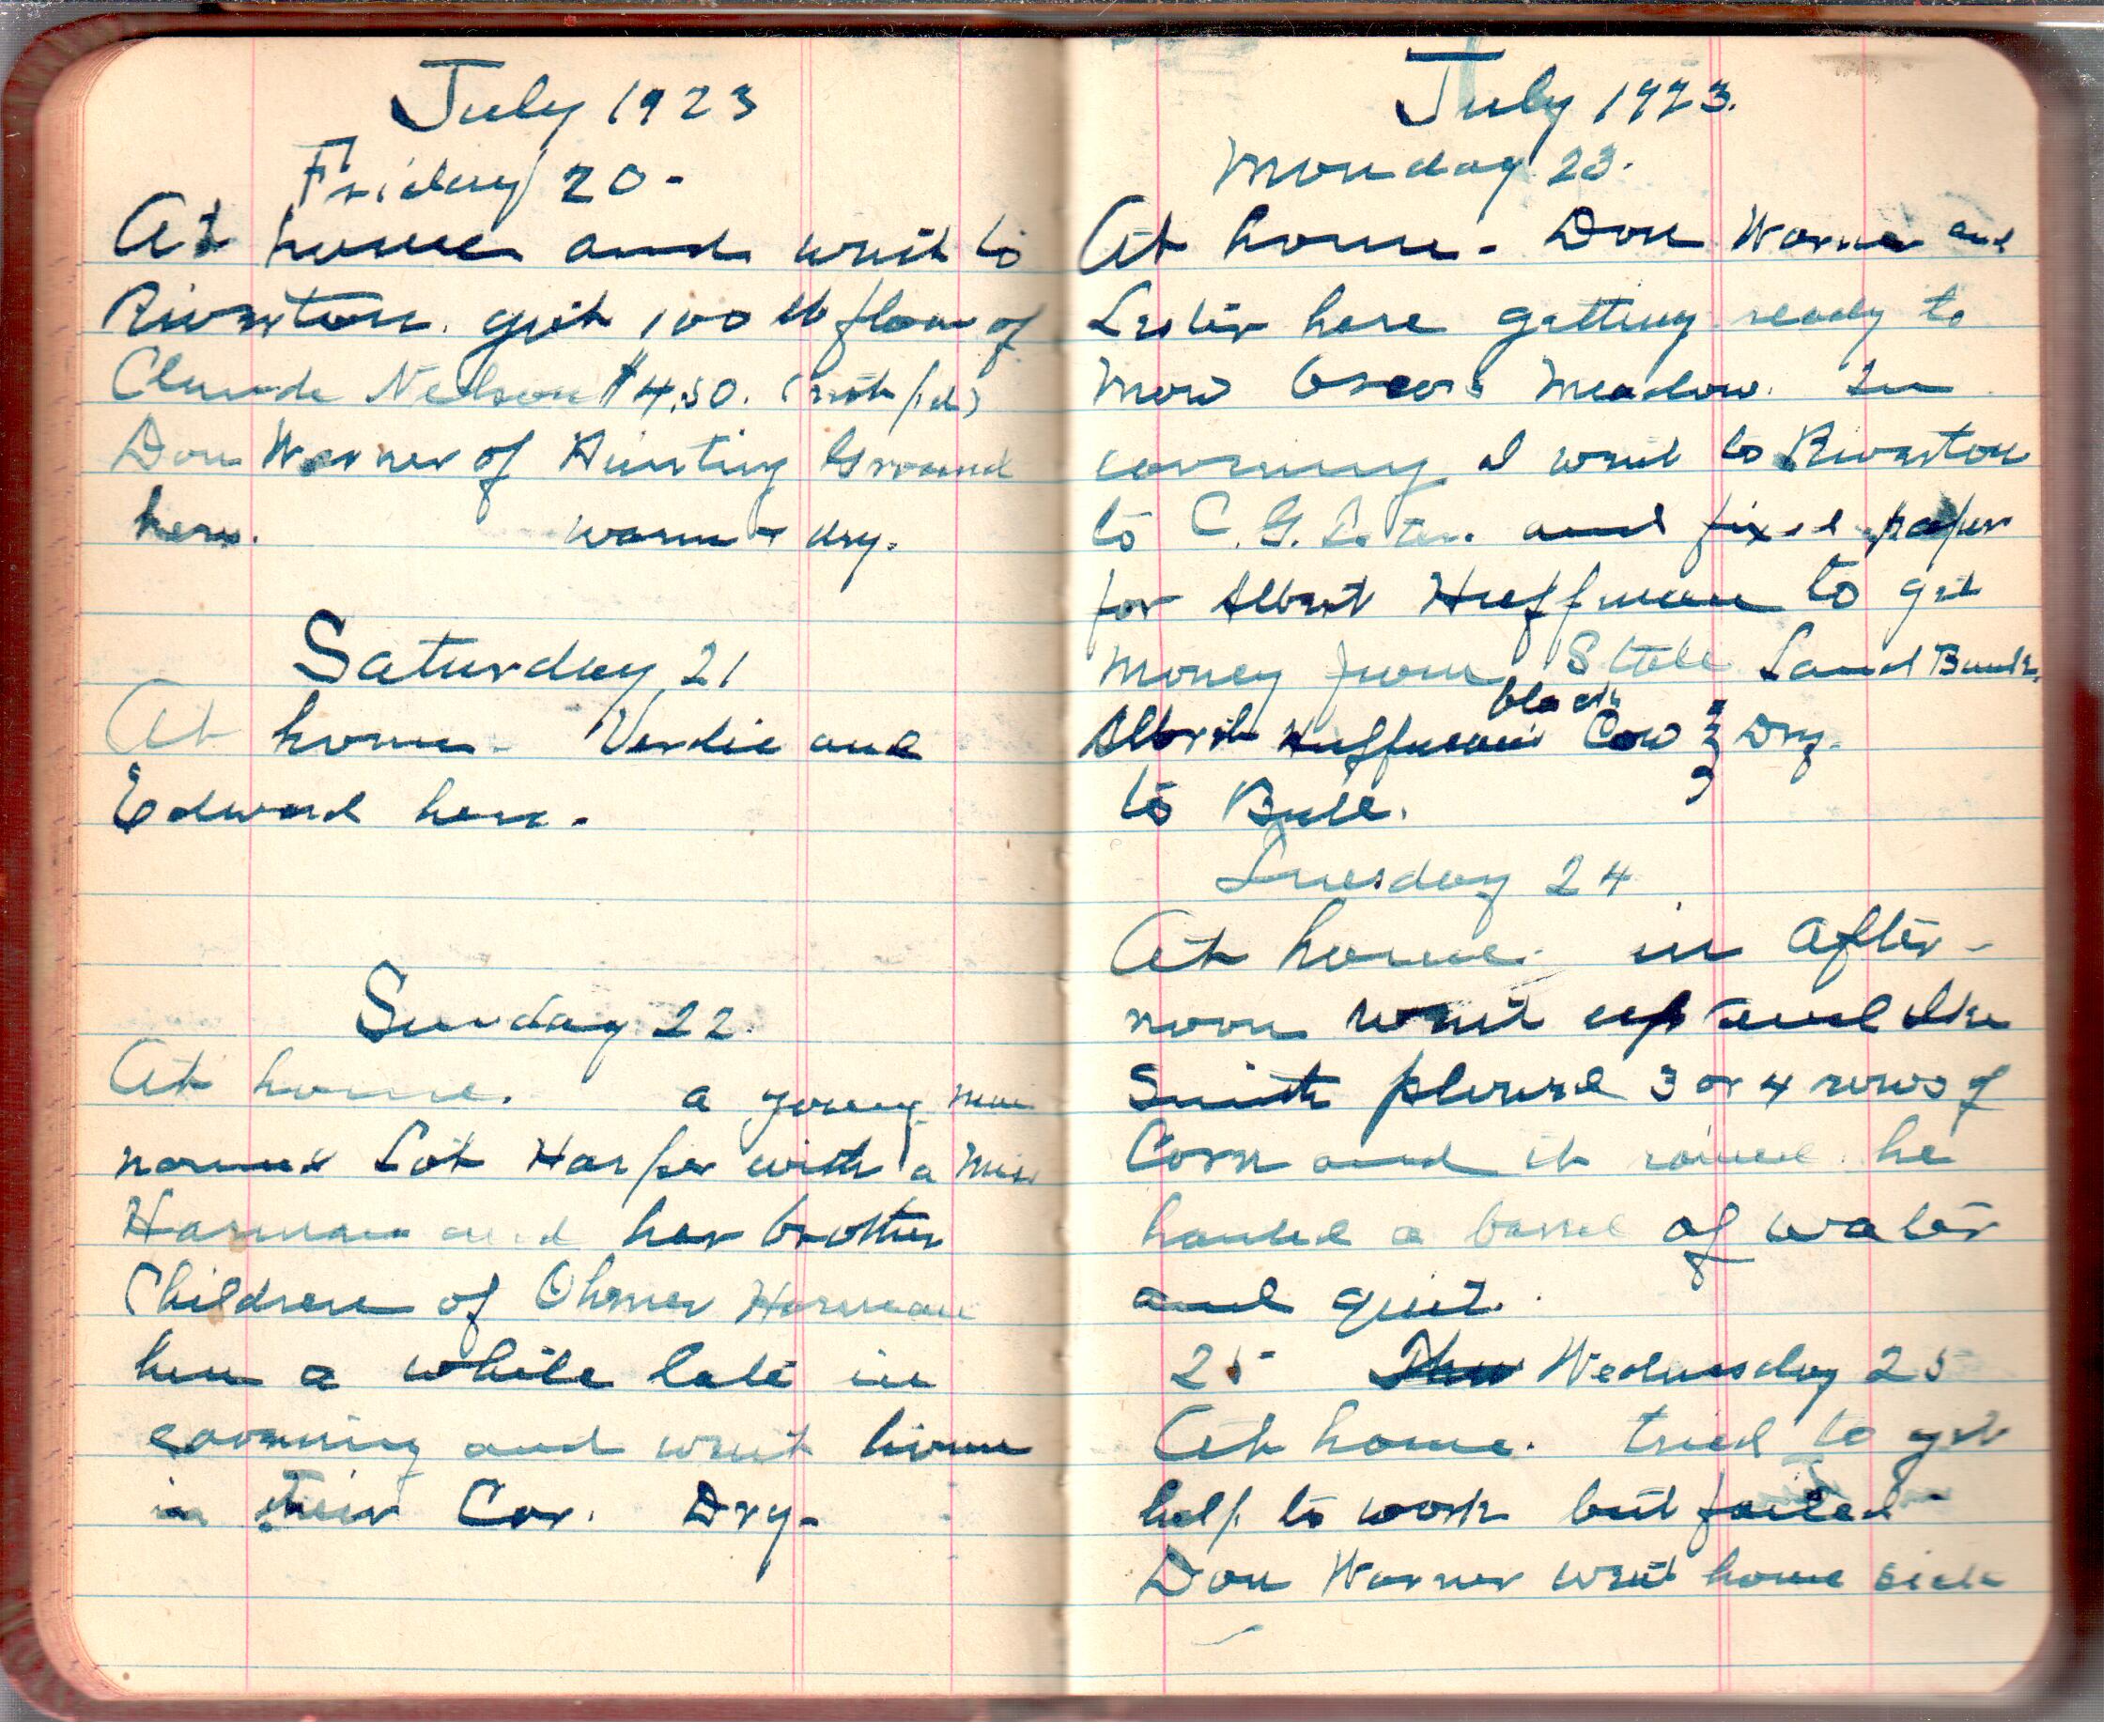 July 1923
Friday 20-
At home and went to
Riverton. got 100 lb flour of
Claude Nelson $4.50. (not pd)
Don Warner of Hunting Ground
here. warm & dry.
Saturday 21
At home - Verdie and
Edward here.
Sunday 22.
At home. a young man
named Lot Harper with a Miss
Harman and her brother
Children of Ohmer Harman
here a while late in
evening and went home
in their Car. Dry-
July 1923.
Monday 23.
At home - Don Warner and
Lester here getting ready to
mow Oscars Meadow. In
evening I went to Riverton
to C. G. and fixed paper
for Albert Huffman to get
money from State Land Bank.
black
Albert Huffmans Cow } Dry.
to Bull.
Tuesday 24
At home. in after-
noon went up and Ike
Smith plowed 3 or 4 rows of
Corn and it rained. he
hauled a barrel of water
and quit.
25 Thu Wednesday 25
At home. tried to get
help to work but failed-
Don Warner went home sick